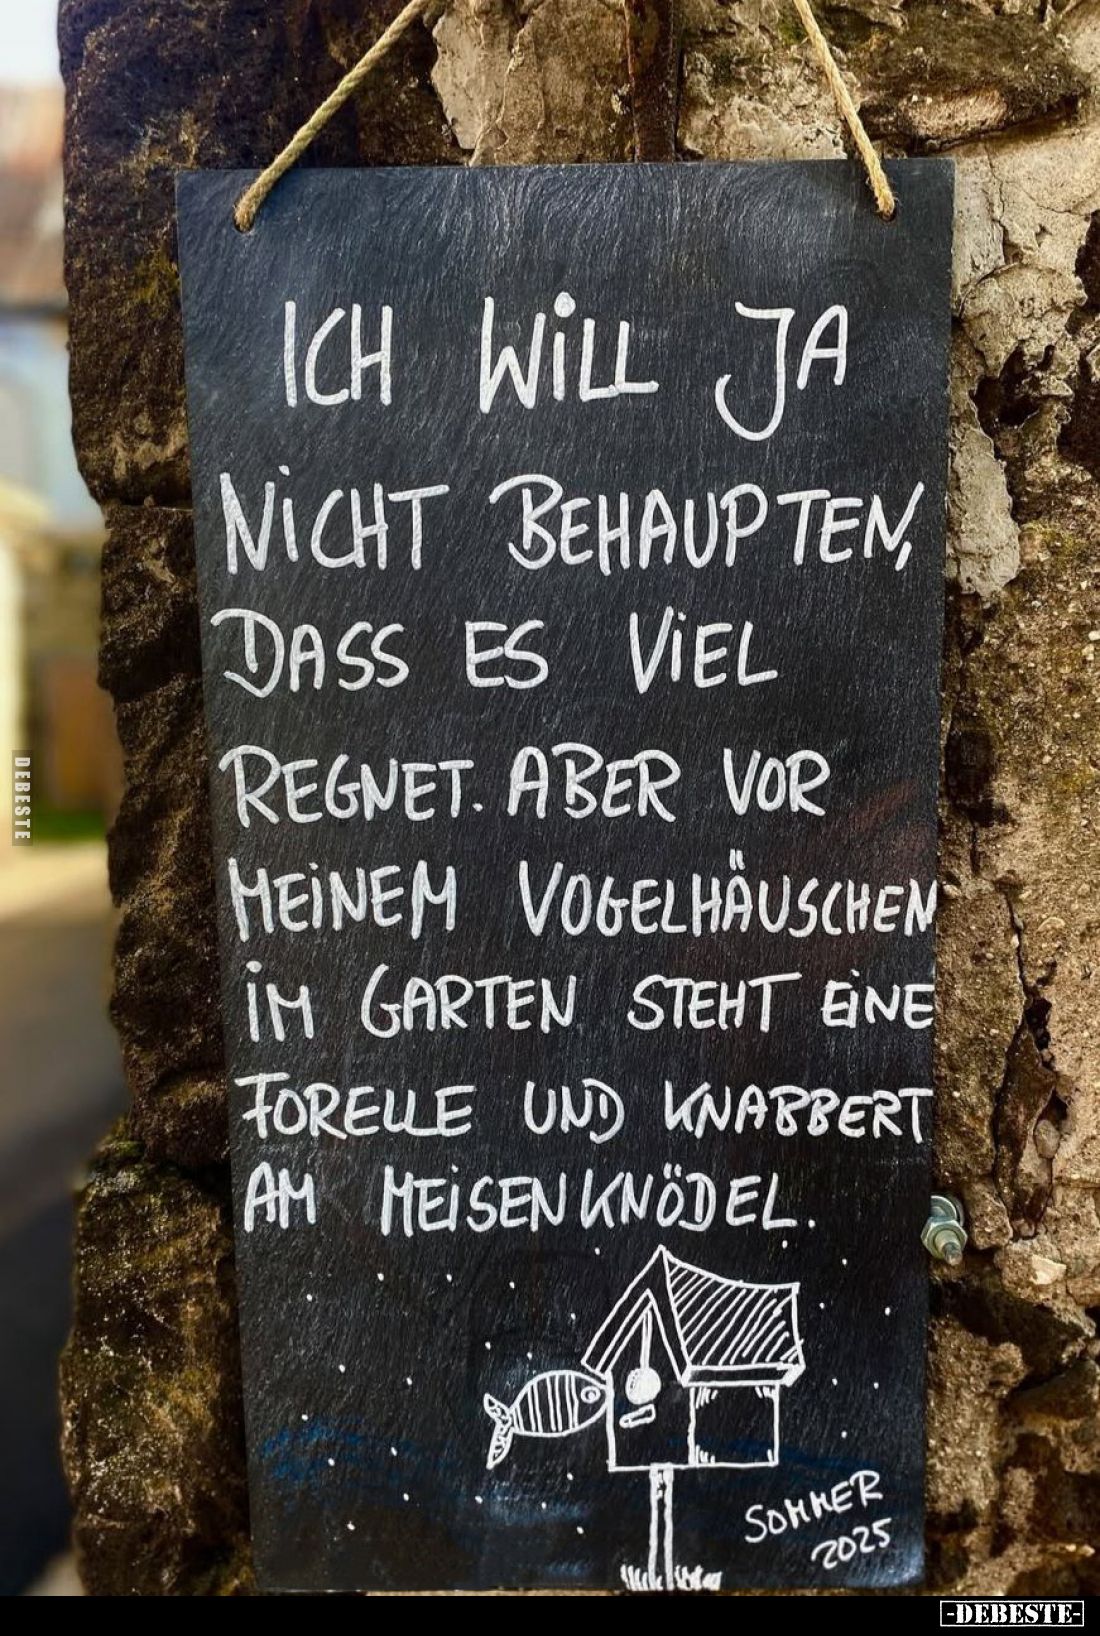 ICH WiLL JA
NiCHT BEHAUPTEN,
DASS ES ViEL
REGNET. ABER VOR
MEiNEM VOGELHÄUSCHEN
iM GARTEN STEHT EiNE
FORELLE UND KNABBERT
AM MEiSENKNÖDEL.
SOMMER
2025
DEBESTE
-DEBESTE-